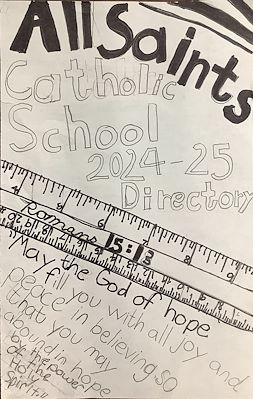 All Saints
Catholic
School
2024-25
Directory
4 5 6 7 8 9
Romans 15:13
"May the God of hope
fill you with all joy and
peace in believing so
that you may
abound in hope
by the power
of the
Holy
Spirit."